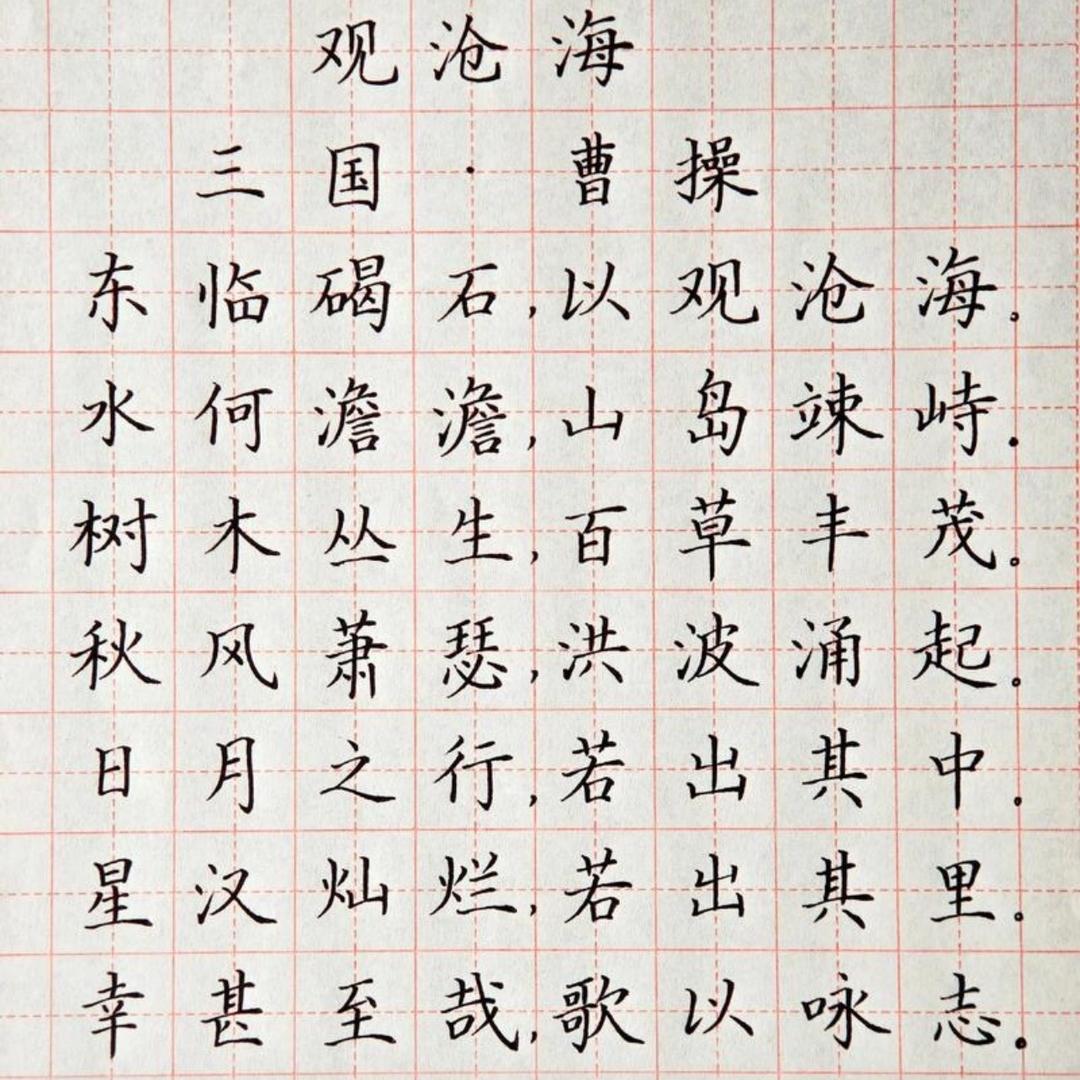 观沧海
三国·曹操
东临碣石,以观沧海。
水何澹澹,山岛竦峙.
树木丛生,百草丰茂。
秋风萧瑟,洪波涌起。
日月之行,若出其中.
星汉灿烂,若出其里。
幸甚至哉,歌以咏志。